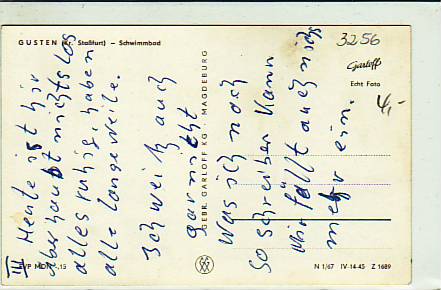 GÜSTEN (Kr. Staßfurt) - Schwimmbad
3256
Garloff
Echt Foto
4,-
III
Heute ist hir
überhaubt nichts los
alles ruhig, haben
alle langeweile.
Ich weiß auch
garnicht
was ich noch
so schreiben kann
Mir fällt auch nichts
mehr ein.
GEBR. GARLOFF KG · MAGDEBURG
EVP MDN -,15
N 1/67 IV-14-45 Z 1689